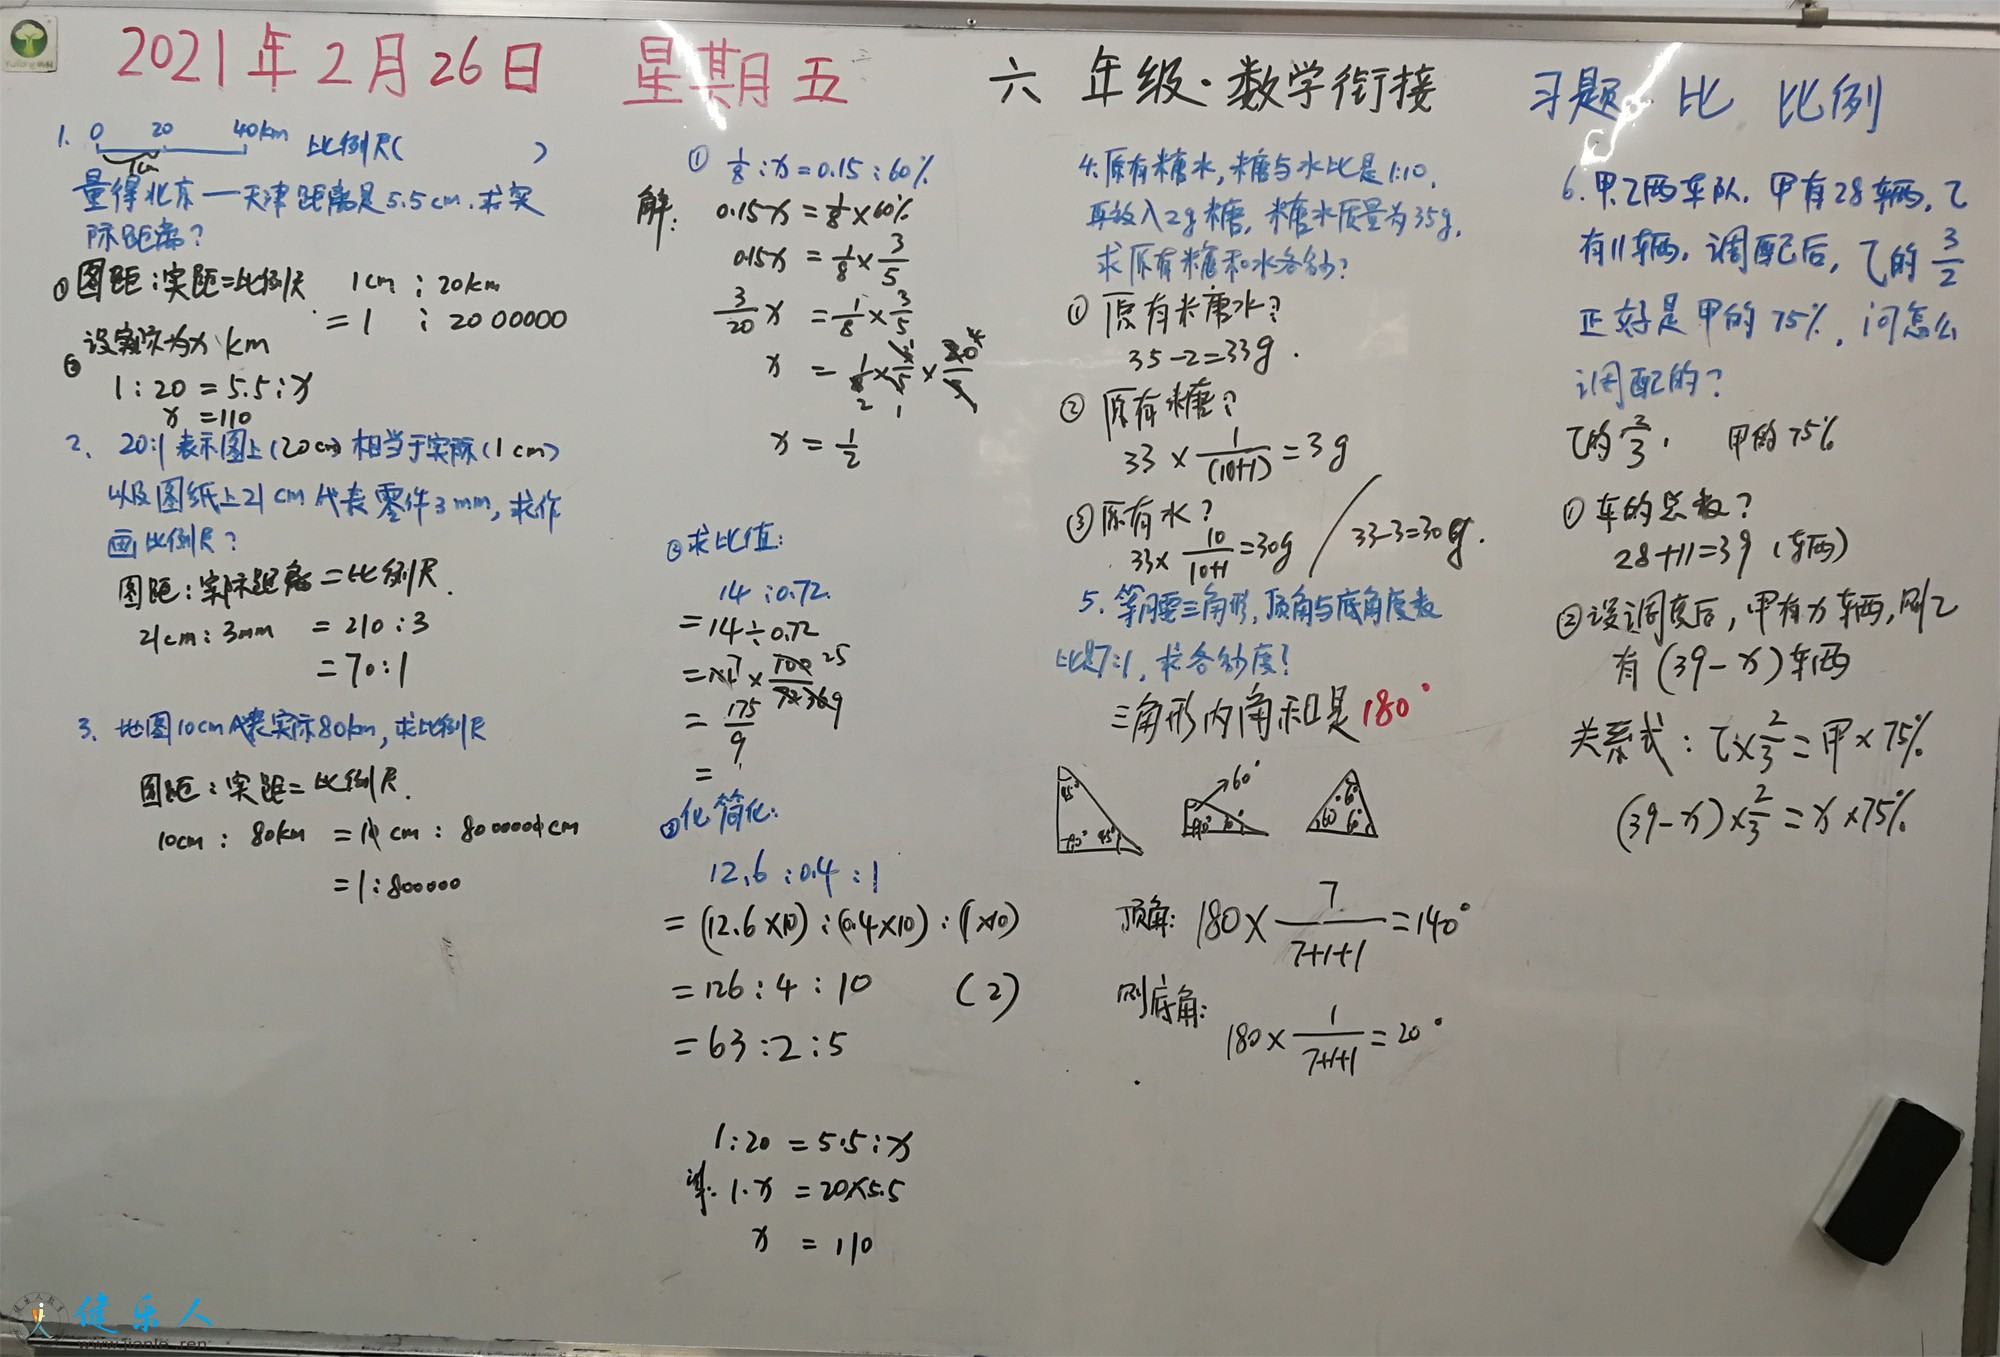 2021年2月26日 星期五 六年级·数学衔接 习题 比 比例
1. 0 20 40km 比例尺( )
1cm
量得北京—天津距离是5.5cm.求实
际距离?
① 图距:实距=比例尺 1cm : 20km
= 1 : 2000000
② 设实际为x km
1:20 = 5.5:x
x =110
2. 20:1表示图上(20cm)相当于实际(1cm)
以及图纸上21cm代表零件3mm,求作
画比例尺?
图距:实际距离=比例尺.
21cm:3mm = 210:3
= 70:1
3. 地图10cm代表实际80km,求比例尺
图距:实距=比例尺.
10cm : 80km = 10cm : 8000000cm
=1:800000
① 1/8 : x = 0.15 : 60%
解: 0.15x = 1/8 × 60%
0.15x = 1/8 × 3/5
3/20 x = 1/8 × 3/5
x = 1/8 × 3/5 × 20/3
x = 1/2
② 求比值:
14 : 0.72
= 14÷0.72
= 14 × 100/72
= 175/9
=
③ 化简化:
12.6 : 0.4 : 1
= (12.6×10) : (0.4×10) : (1×10)
= 126 : 4 : 10 (2)
= 63 : 2 : 5
1:20 = 5.5:x
解: 1·x = 20×5.5
x = 110
4. 原有糖水,糖与水比是1:10,
再放入2g糖,糖水质量为35g,
求原有糖和水各多少?
① 原有糖水?
35-2=33g.
② 原有糖?
33 × 1/(10+1) = 3g
③ 原有水?
33× 10/10+1 =30g / 33-3=30g.
5. 等腰三角形,顶角与底角度数
比是7:1,求各多少度?
三角形内角和是180°
45° 90° 45° 60° 90° 30° 60° 60° 60°
顶角: 180× 7/7+1+1 =140°
则底角:
180× 1/7+1+1 =20°
6. 甲.乙两车队.甲有28辆,乙
有11辆.调配后,乙的3/2
正好是甲的75%,问怎么
调配的?
乙的2/3, 甲的75%
① 车的总数?
28+11=39(辆)
② 设调度后,甲有x辆,则乙
有(39-x)辆
关系式:乙×2/3=甲×75%
(39-x)×2/3=x×75%
健乐人
www.jianle.ren